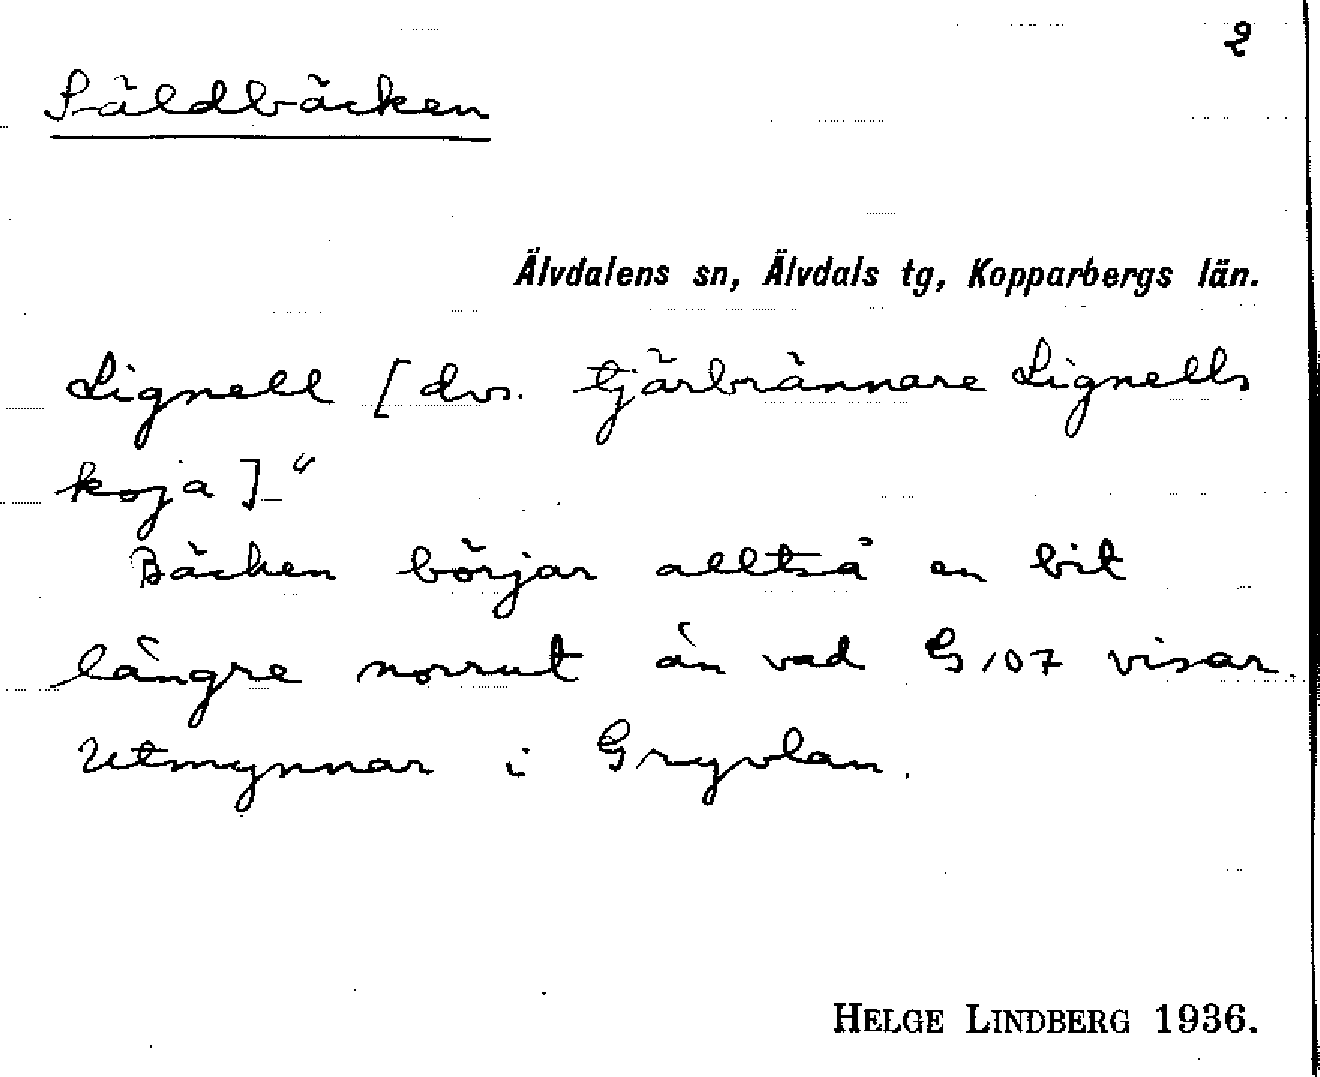 2
Säldbäcken
Älvdalens sn, Älvdals tg, Kopparbergs län.
Lignell [dvs. tjärbrännare Lignells
koja]_"
Bäcken börjar alltså en bit
längre norrut än vad G107 visar.
Utmynnar i Gryvlan.
HELGE LINDBERG 1936.